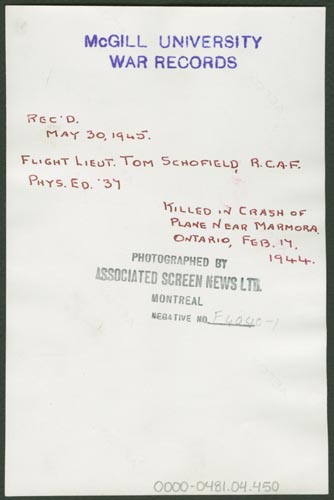 McGILL UNIVERSITY
WAR RECORDS
REC'D.
MAY 30, 1945.
FLIGHT LIEUT. TOM SCHOFIELD, R.C.A.F.
PHYS. ED. '37
KILLED IN CRASH OF
PLANE NEAR MARMORA,
ONTARIO, FEB. 17,
1944.
PHOTOGRAPHED BY
ASSOCIATED SCREEN NEWS LTD.
MONTREAL
NEGATIVE NO. F4040-1
0000-0481.04.450